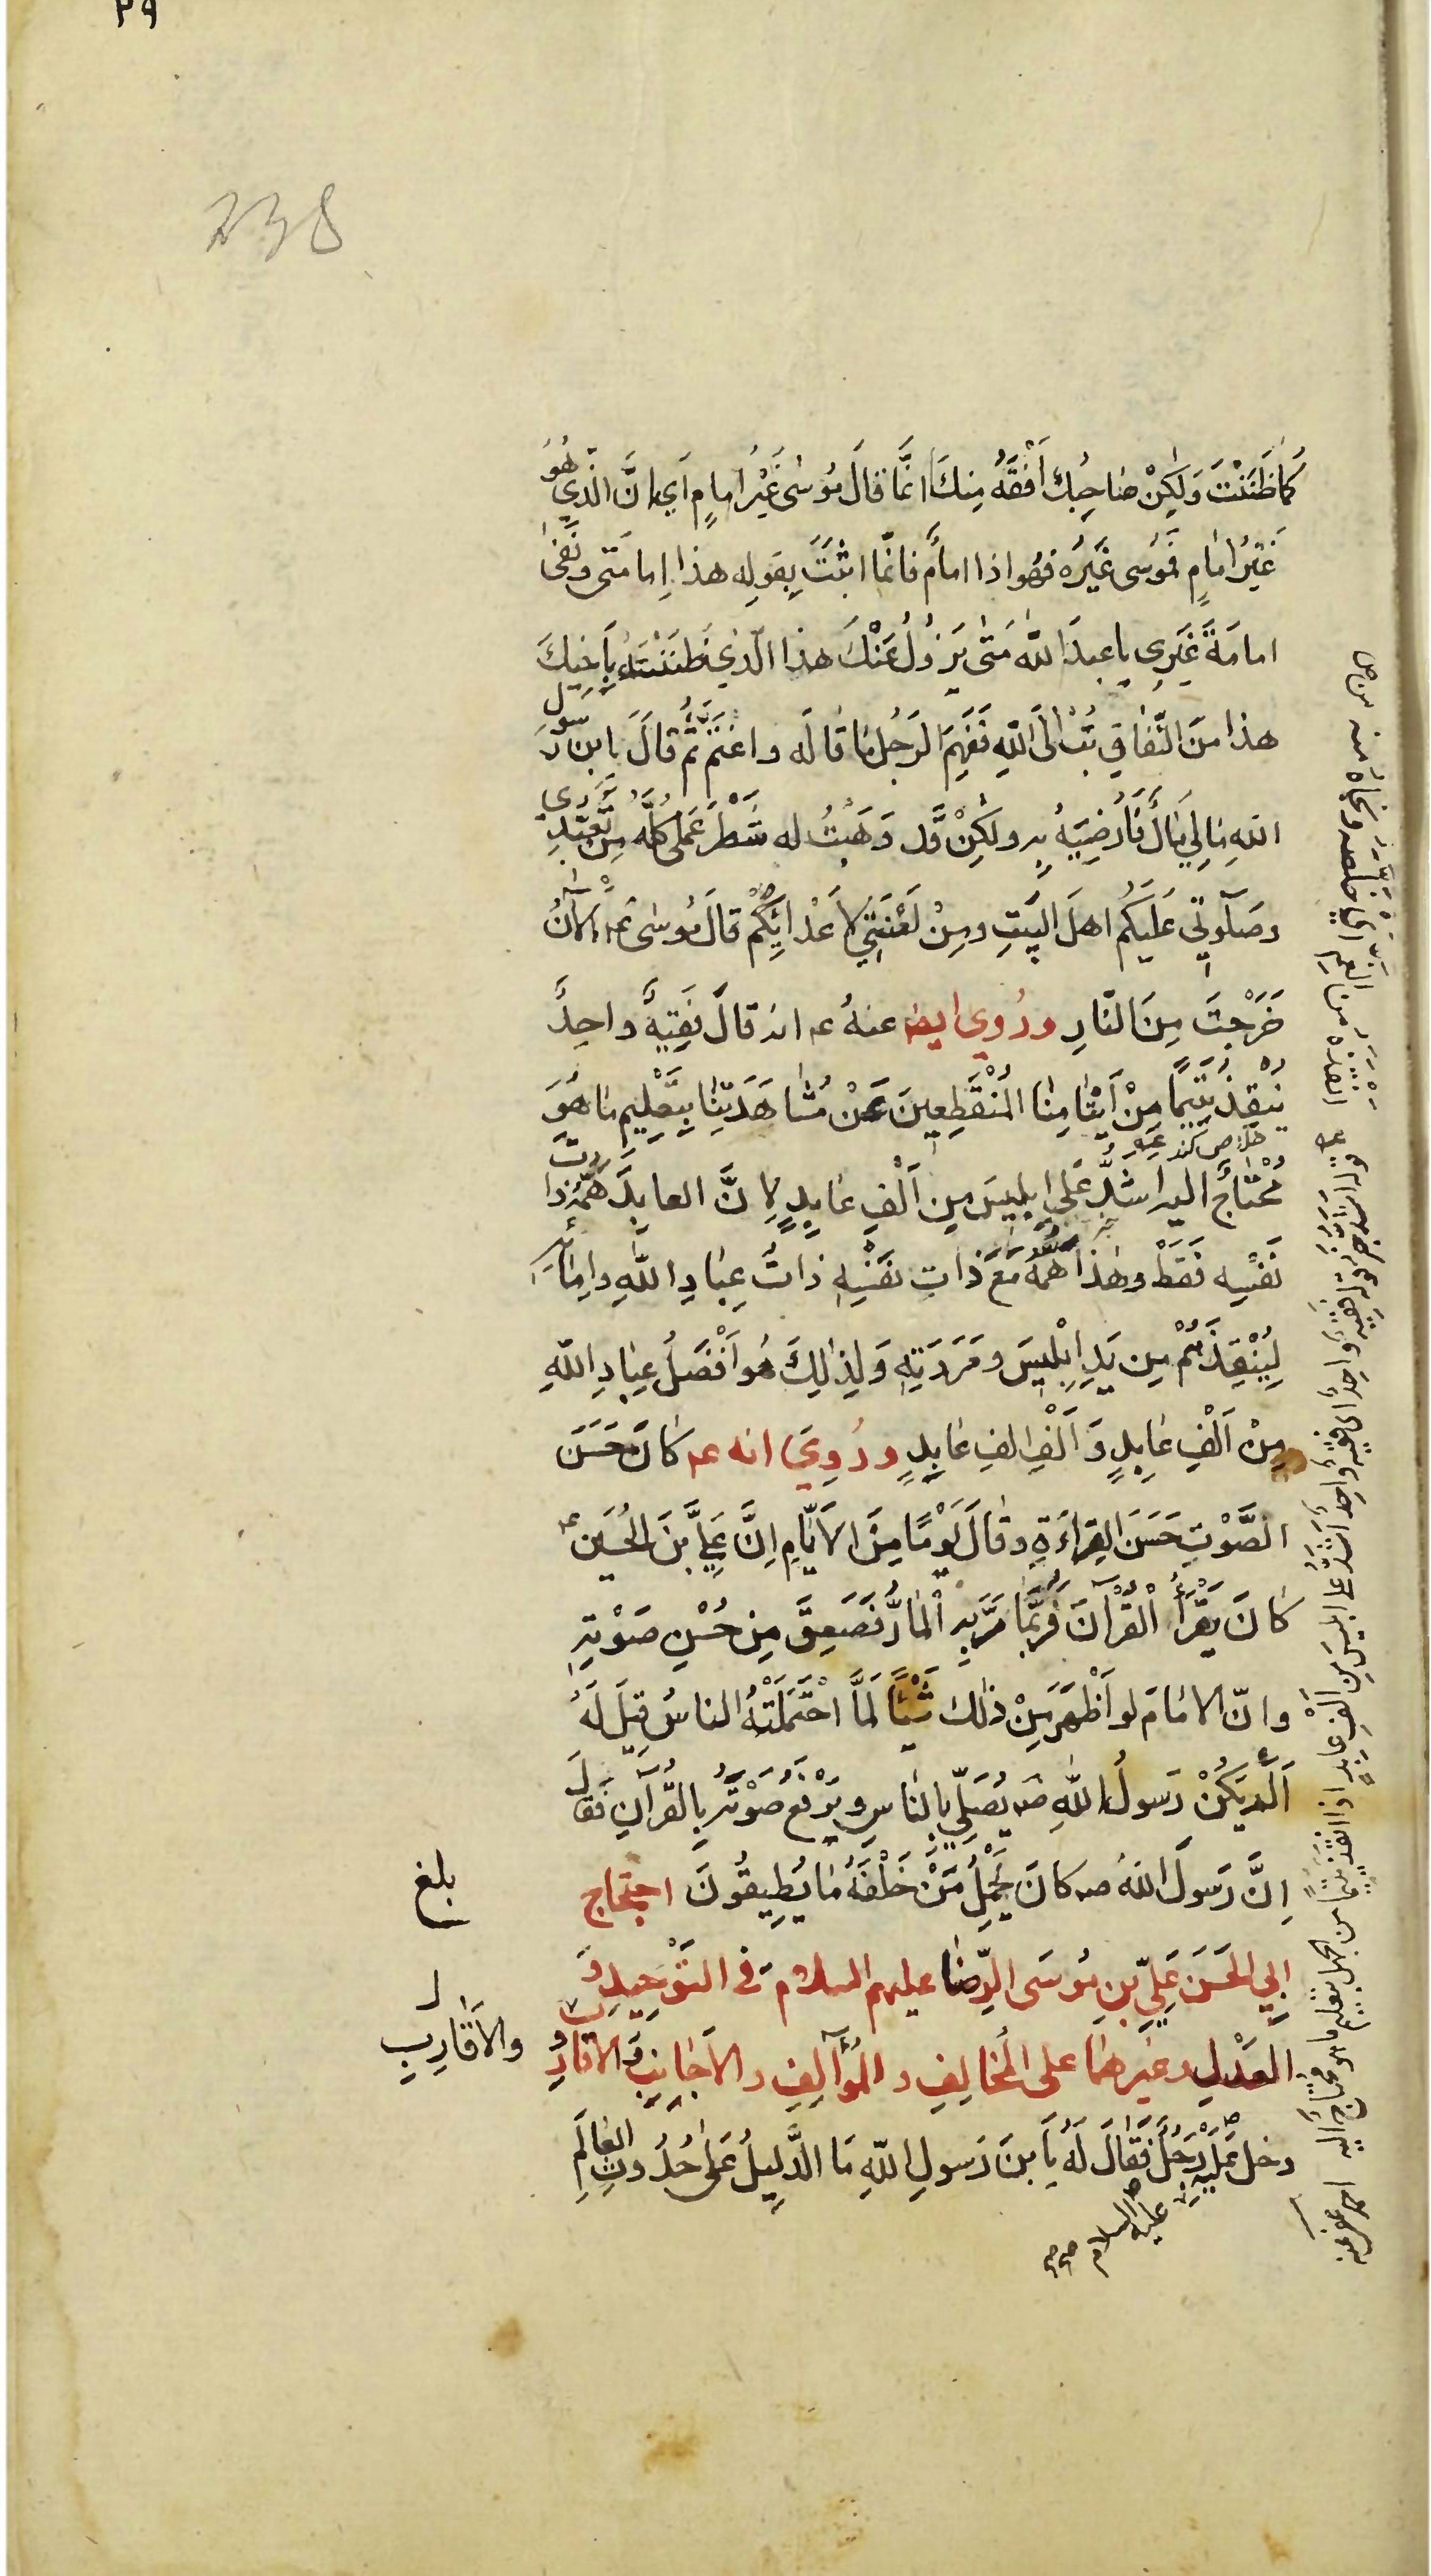 ٢٩
238
كَما ظَنَنْتَ وَلكِنْ صٰاحِبُكَ اَفْقَهُ مِنكَ اِنَّما قالَ مُوسٰى غَيْرُ اِمامٍ اَي اِنَّ الَّذِي هُوَ
غَيْرُ اِمامٍ فَمُوسى غَيْرُه فهُو اذا امامٌ فانّما اثْبَتَ بِقَولِه هذا اِمامَتى ونَفٰى
امامَةَ غَيْرِى يا عبدَ الله مَتىٰ يَزُولُ عَنْكَ هذا الَّذي ظَنَنْتَهُ بِاَخِيكَ
هذا مِنَ النِّفٰاقِ تُبْ اِلَى اللهِ فَفَهِمَ الرَجُلُ مٰا قٰالَه واغْتَمَّ ثُمَّ قالَ يا بن رَسُولِ
اللهِ مٰا لِي مٰالٌ فَاُرْضِيَهُ بِه ولكِنْ قَد وَهَبْتُ له شَطْرَ عَمَلِى كُلِّه مِنْ تَعَبُّدِي
وصَلٰوتِي عَلَيكُم اهلَ البَيتِ ومِنْ لَعْنَتِي لِاَعْدائِكُمْ قالَ مُوسىٰ عم الْاٰنَ
خَرَجْتَ مِنَ النّارِ ورُوِي ايض عنهُ عم انه قالَ فَقِيهٌ واحِدٌ
يُنْقِذُ يَتِيمًا مِنْ اَيْتٰامِنٰا المُنْقَطِعِينَ عَنْ مُشٰاهَدَتِنٰا بِتَعْلِيمِ مٰا هُوَ
خلاص كند
مُحْتٰاجٌ اليه اشَدُّ عَلىٰ ابليسَ مِن اَلْفِ عٰابِدٍ لِاَنَّ العابِدَ هَمُّهُ ذاتُ
نَفْسِه فَقَطْ وهٰذا هَمُّهُ مَعَ ذاتِ نَفْسِهِ ذاتُ عِبٰادِ اللهِ واِمٰائِه
لِيُنْقِذَهُمْ مِن يَدِ اِبْلِيسَ ومَرَدَتِهِ وَلِذٰلِكَ هُو اَفْضَلُ عِبٰادِ اللهِ
مِنْ اَلْفِ عٰابِدٍ وَاَلْفِ الفِ عٰابِدٍ ورُوِيَ انه عم كٰانَ حَسَنَ
الصَّوْتِ حَسَنَ القِراءَةِ وقٰالَ يَوْمًا مِنَ الاَيّٰامِ اِنَّ عَلِيَّ بنَ الحُسَينِ عم
كٰانَ يَقْرَأُ الْقُرْآنَ فَرُبَّمٰا مَرَّ بِه الْمٰارُّ فَصَعِقَ مِن حُسْنِ صَوْتِهِ
وانّ الامٰامَ لو اَظْهَرَ مِنْ ذٰلك شَيْئًا لَمَّا احْتَمَلَتْهُ الناسُ قِيلَ لَهُ
اَلَمْ يَكُنْ رَسولُ اللهِ ص يُصَلِّي بِالنٰاسِ ويَرْفَعُ صَوْتَهُ بِالقُرآنِ فَقٰالَ
اِنَّ رَسولَ اللهِ ص كانَ يُحَمِّلُ مَنْ خَلْفَهُ مٰا يُطِيقُونَ احتِجٰاج
بلغ
اَبِي الحَسَنِ عَلِيِّ بنِ مُوسَى الرِّضٰا عليهم السلام فى التَوْحِيدِ وَ
العَدْلِ وغيرهما على المُخٰالِفِ والمُؤٰالِفِ والاَجٰانِبِ وَالاَقٰارِبِ
والاَقٰارِبِ
دخل عَلَيْهِ رَجُلٌ فَقٰالَ لَهُ يَا بنَ رَسولِ اللهِ مَا الدَّلِيلُ عَلىٰ حُدُوثِ العٰالَمِ
عليه السلام
قوله اشد خبر لقوله فقيه واحد اى فقيه واحد اشدّ على ابليس من الف عابد اذا انقذ يتيما من الجهل بتعليم ما هو محتاج اليه